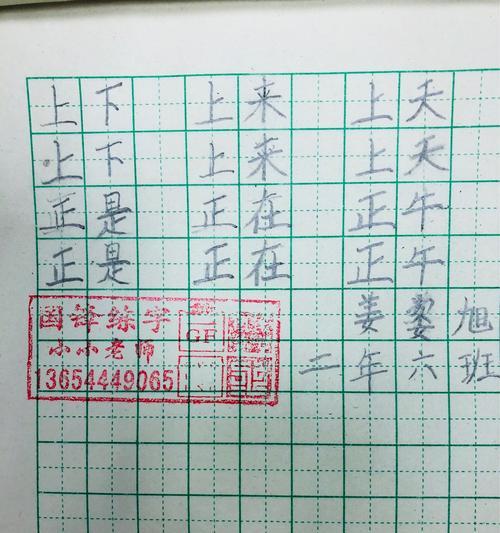 上下 上来 上天
上下 上来 上天
正是 正在 正午
正是 正在 正午
姜蒌旭
二年六班
国锋练字
小小老师
13654449065
GF